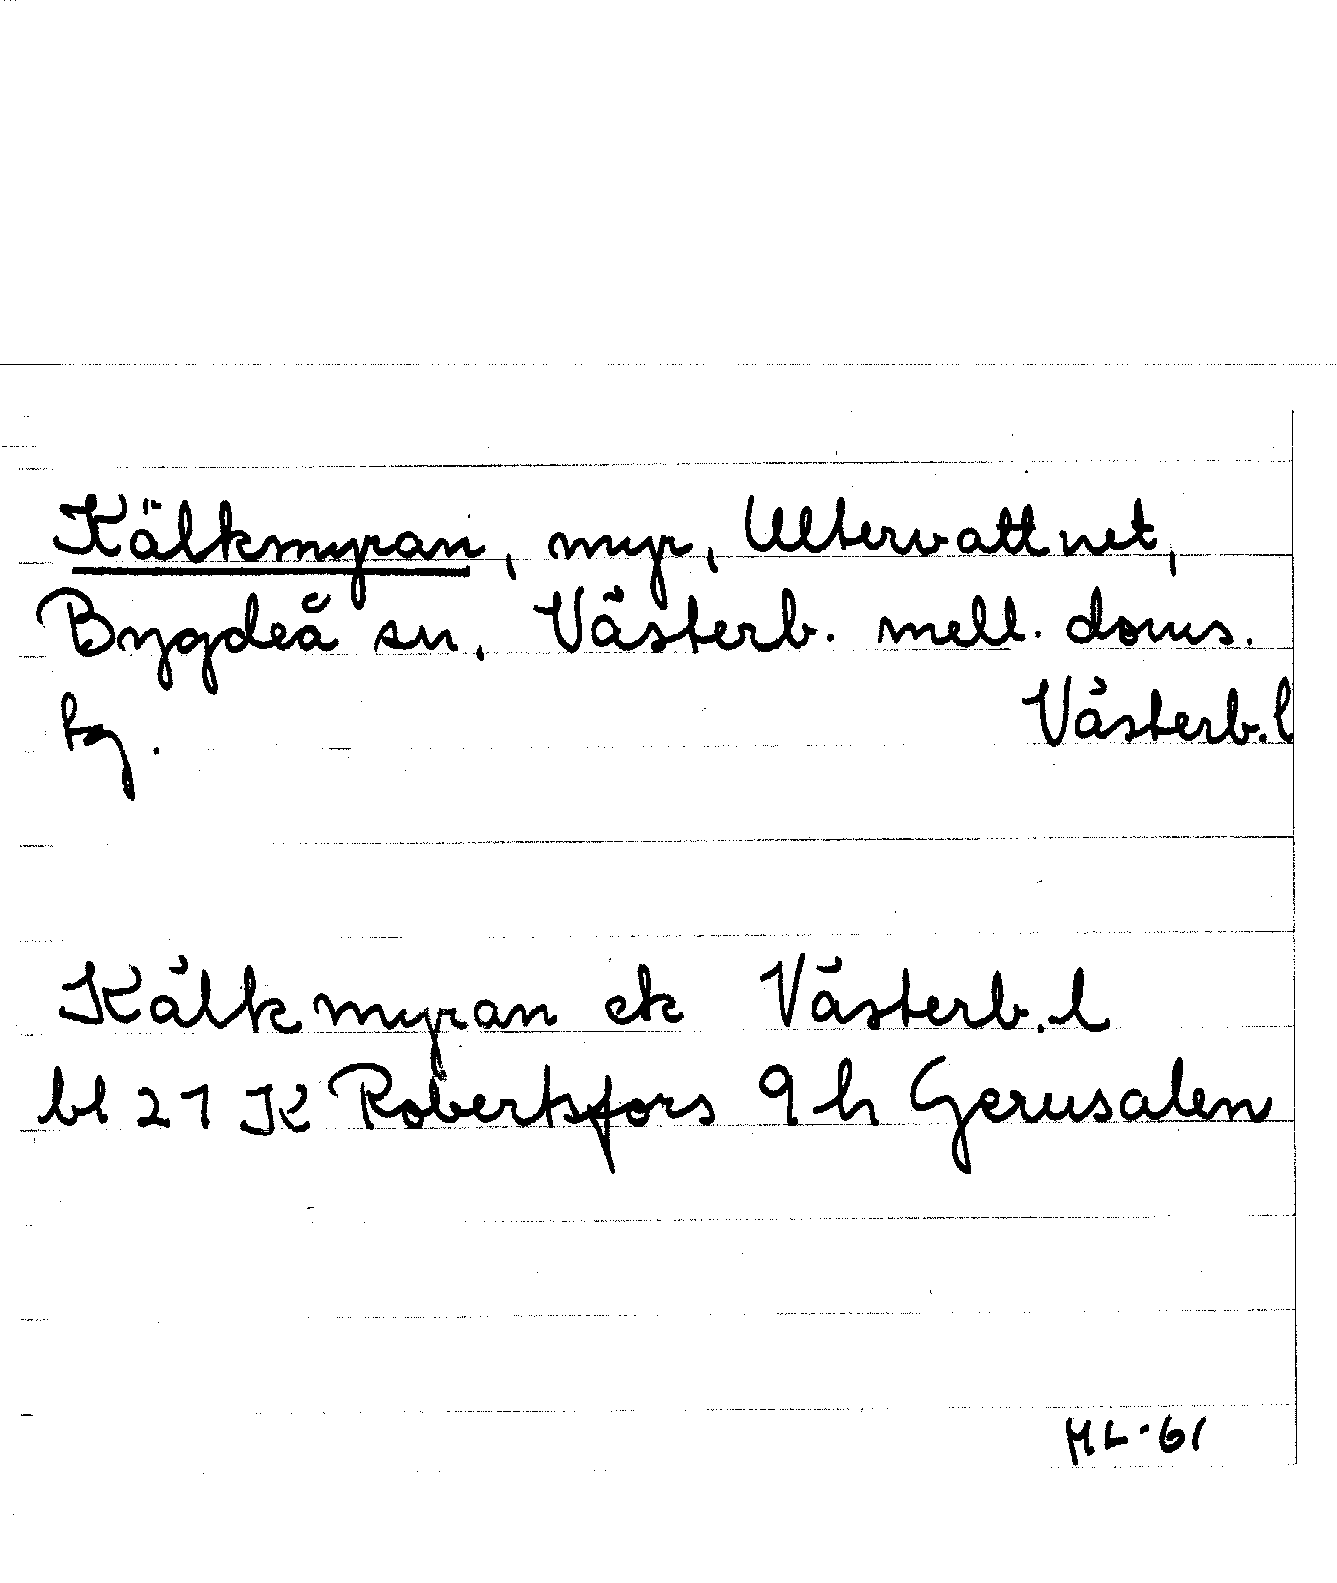 Kälkmyran, myr, Ultervattnet,
Bygdeå sn, Västerb. mell. doms.
tg. Västerb.l
Kälkmyran ek Västerb.l
bl 21 K Robertsfors 9 h Gerusalen
ML-61